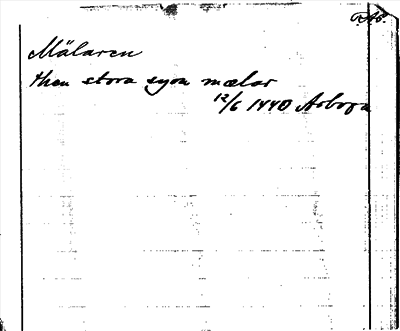 RAp.
Mälaren
then stora syon mælar
12/6 1440 Arboga